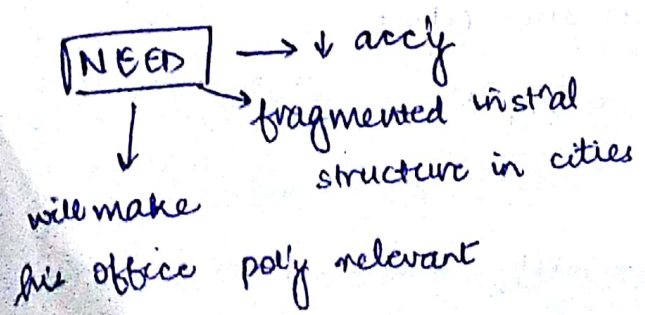 NEED → ↓ acc'y
fragmented inst'nal
structure in cities
will make
his office pol'y relevant